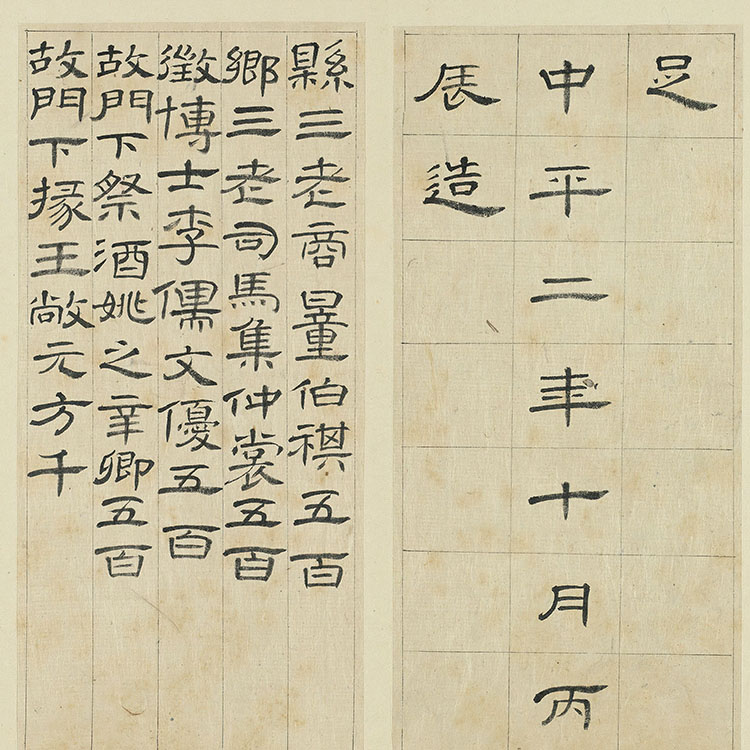 足
中平二年十月丙
辰造
縣三老商量伯祺五百
鄉三老司馬集仲裳五百
徵博士李儒文優五百
故門下祭酒姚之辛卿五百
故門下掾王敞元方千